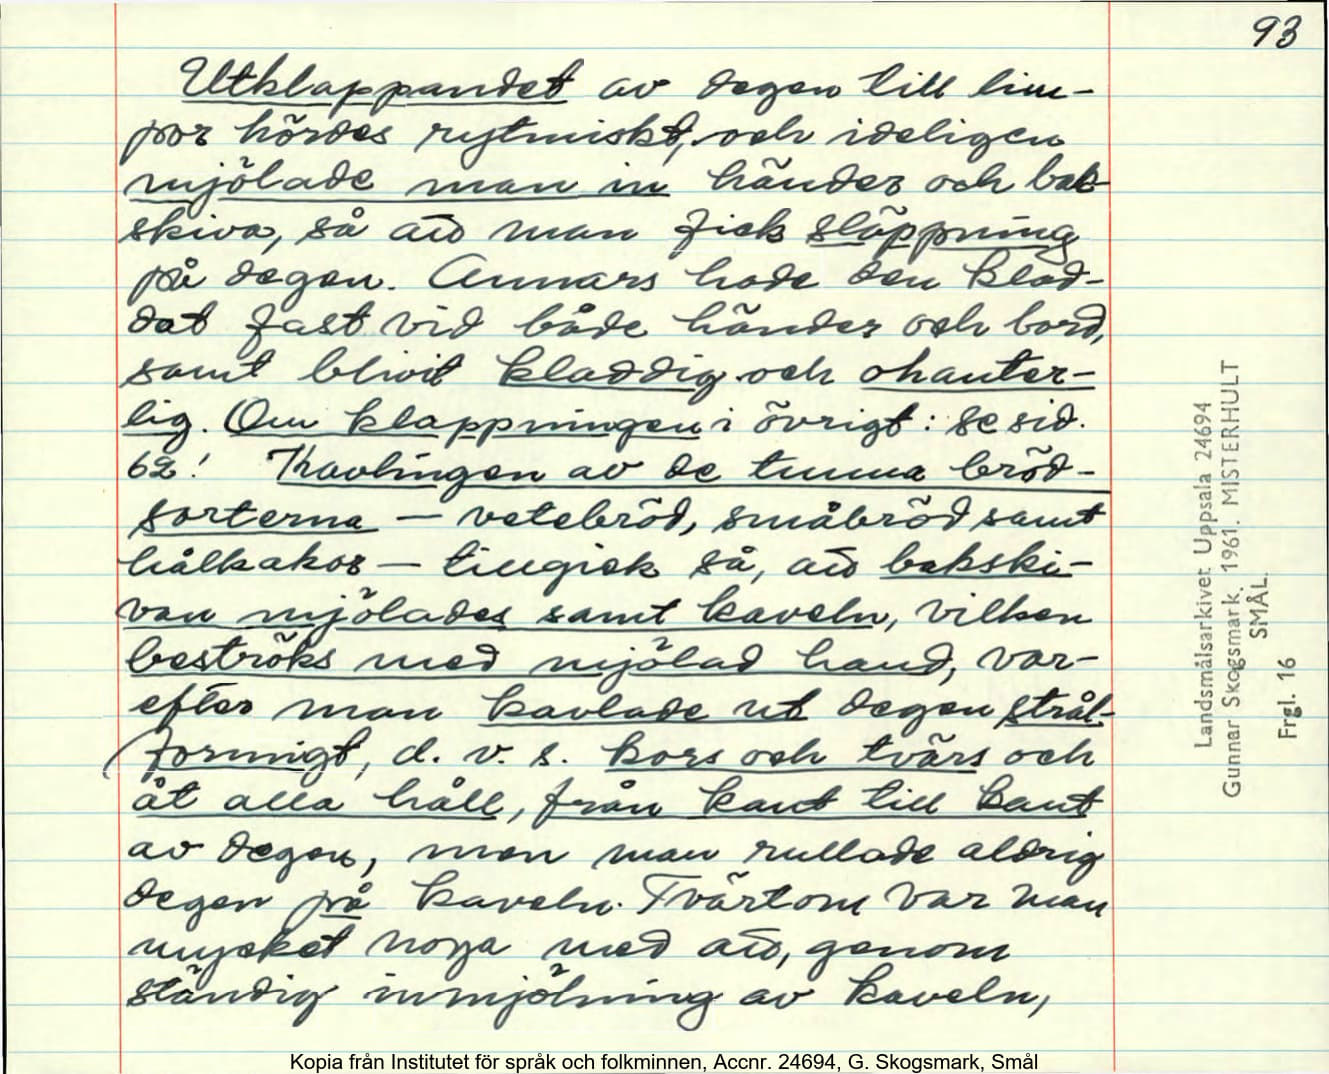 93
Utklappandet av degen till lim-
por hördes rytmiskt, och ideligen
mjölade man in händer och bak-
skiva, så att man fick släppning
på degen. Annars hade den klad-
dat fast vid både händer och bord,
samt blivit kladdig och ohanter-
lig. Om klappningen i övrigt: se sid.
62! Kavlingen av de tunna bröd-
sorterna – vetebröd, småbröd samt
hålkakor – tillgick så, att bakski-
van mjölades samt kaveln, vilken
beströks med mjölad hand, var-
efter man kavlade ut degen strål-
formigt, d. v. s. kors och tvärs och
åt alla håll, från kant till kant
av degen, men man rullade aldrig
degen på kaveln. Tvärtom var man
mycket noga med att, genom
ständig inmjölning av kaveln,
Landsmålsarkivet Uppsala 24694
Gunnar Skogsmark. 1961. MISTERHULT
SMÅL.
Frgl. 16
Kopia från Institutet för språk och folkminnen, Accnr. 24694, G. Skogsmark, Smål